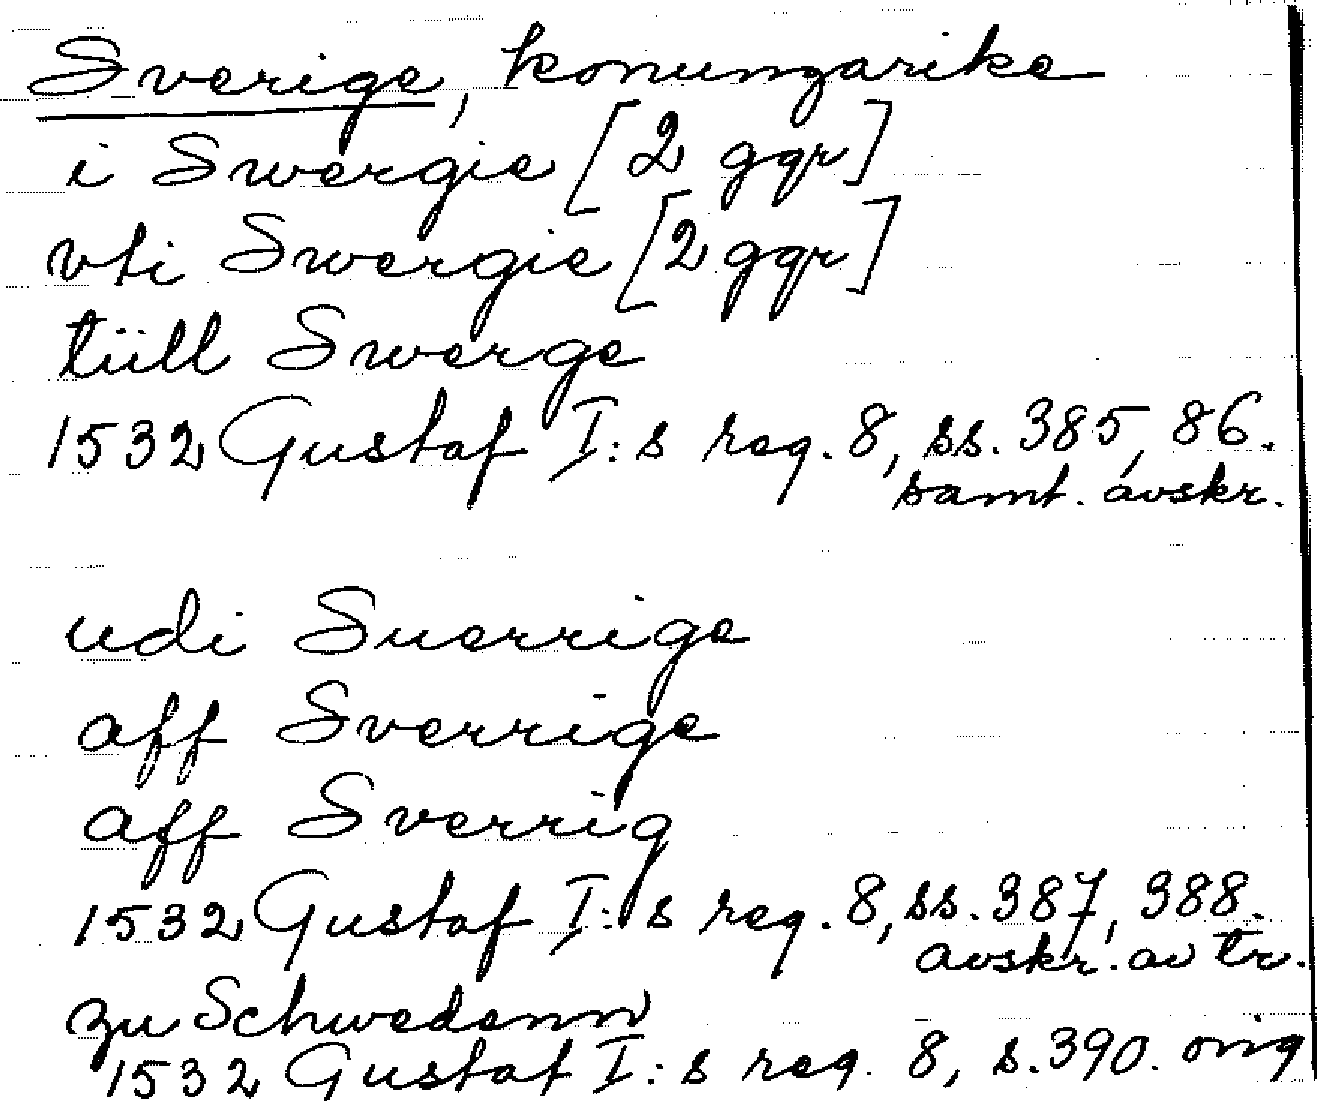 Sverige, konungarike
i Swergie [2 ggr]
vti Swergie [2 ggr]
tüll Swerge
1532 Gustaf I:s reg. 8, ss. 385, 86.
samt. avskr.
udi Suerrige
aff Sverrige
aff Sverrig
1532 Gustaf I:s reg. 8, ss. 387, 388.
avskr. av tr.
zu Schwedenn
1532 Gustaf I:s reg. 8, s. 390. orig